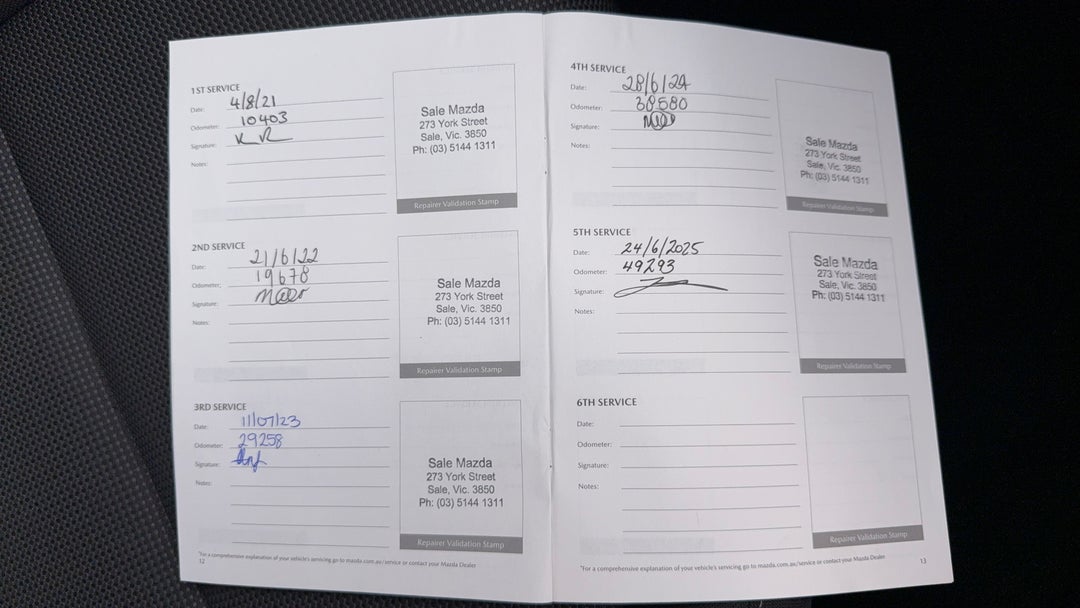 1ST SERVICE
Date: 4/8/21
Odometer: 10403
Signature:
Notes:
Sale Mazda
273 York Street
Sale, Vic. 3850
Ph: (03) 5144 1311
Repairer Validation Stamp
2ND SERVICE
Date: 21/6/22
Odometer: 19678
Signature:
Notes:
Sale Mazda
273 York Street
Sale, Vic. 3850
Ph: (03) 5144 1311
Repairer Validation Stamp
3RD SERVICE
Date: 11/07/23
Odometer: 29258
Signature:
Notes:
Sale Mazda
273 York Street
Sale, Vic. 3850
Ph: (03) 5144 1311
Repairer Validation Stamp
*For a comprehensive explanation of your vehicle's servicing go to mazda.com.au/service or contact your Mazda Dealer
12
4TH SERVICE
Date: 28/6/24
Odometer: 38580
Signature:
Notes:
Sale Mazda
273 York Street
Sale, Vic. 3850
Ph: (03) 5144 1311
Repairer Validation Stamp
5TH SERVICE
Date: 24/6/2025
Odometer: 49293
Signature:
Notes:
Sale Mazda
273 York Street
Sale, Vic. 3850
Ph: (03) 5144 1311
Repairer Validation Stamp
6TH SERVICE
Date:
Odometer:
Signature:
Notes:
Repairer Validation Stamp
*For a comprehensive explanation of your vehicle's servicing go to mazda.com.au/service or contact your Mazda Dealer
13